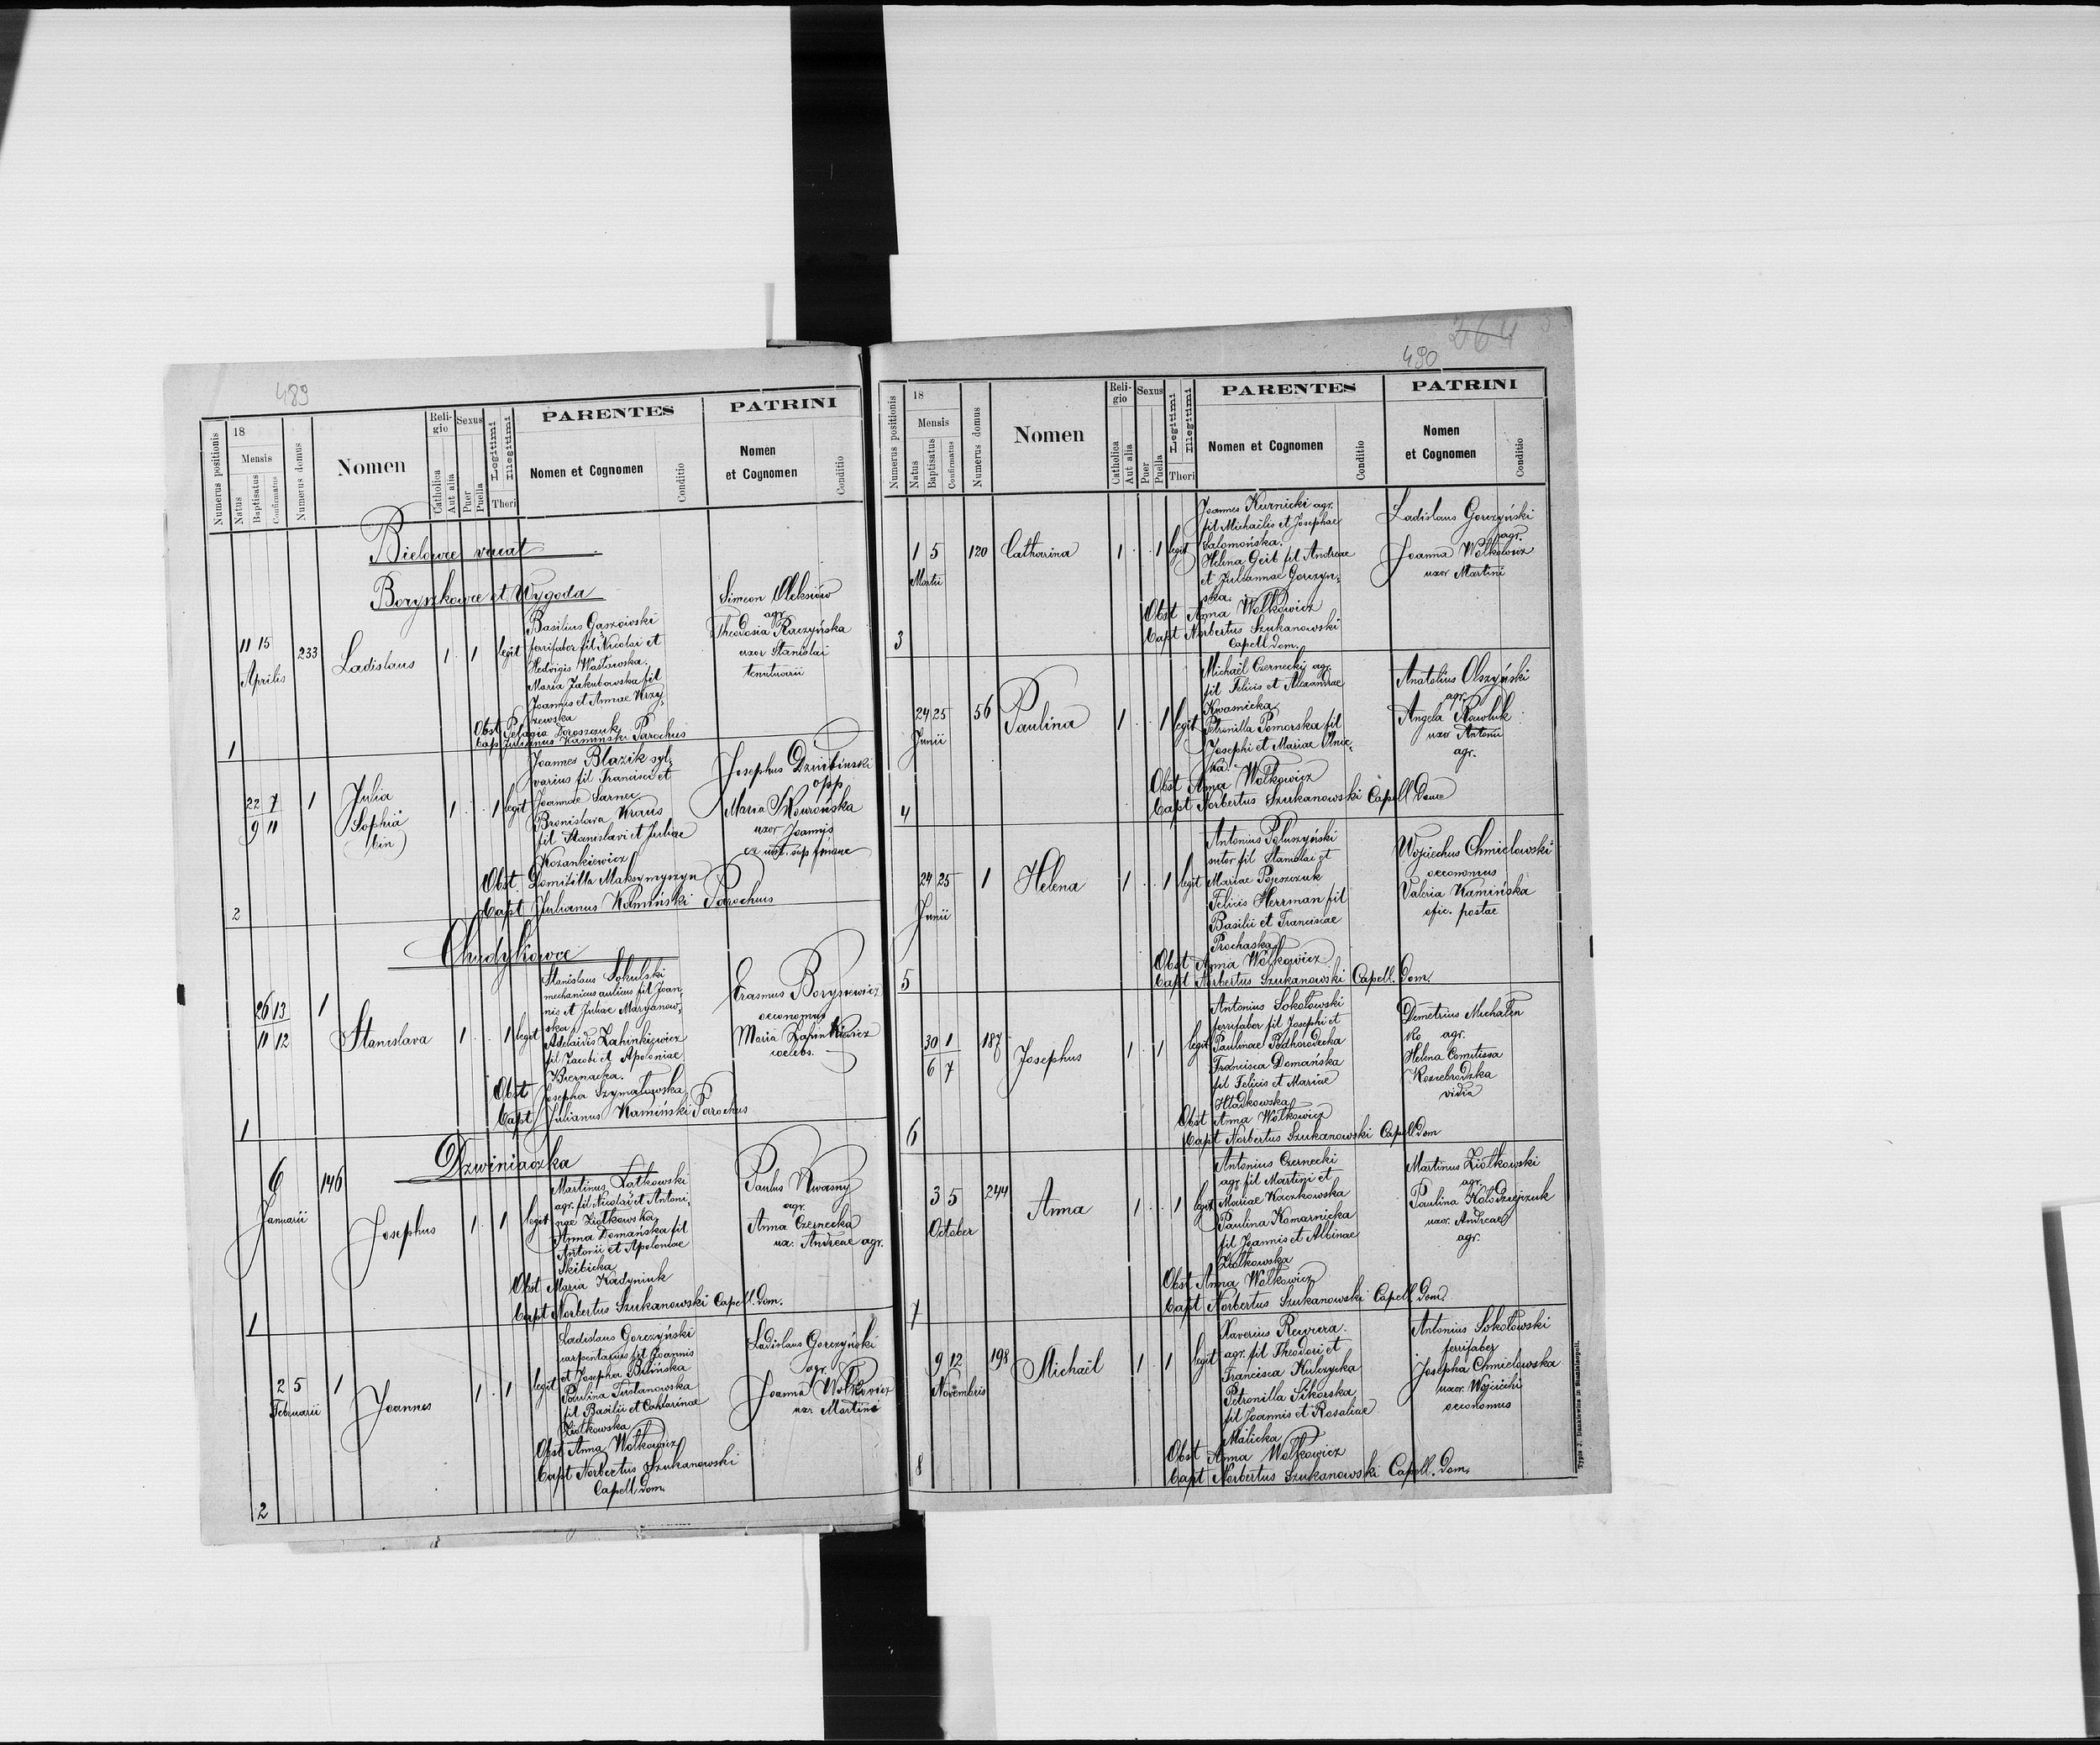 489
Numerus positionis
18
Mensis
Natus
Baptisatus
Confirmatus
Numerus domus
Nomen
Reli-
gio
Catholica
Aut alia
Sexus
Puer
Puella
Legitimi
Illegitimi
Thori
PARENTES
Nomen et Cognomen
Conditio
PATRINI
Nomen
et Cognomen
Conditio
Bielowce vacat
Boryszkowce et Wygoda
1
11 15
Aprilis
233
Ladislaus
1 1
legit
Basilius
ferrifaber fil Nicolai et
Hedvigis
Maria Jakubowska fil
Joannis et Annae Krzy-
zewska
Obst Pelagia
Bapt Julianus Kamiński Parochus
Simeon Oleksiów
agr.
Theodosia Raczyńska
uxor Stanislai
2
22 7
9 11
1
Julia
Sophia
bin
1 1
legit
Joannes Blazik syl-
varius fil Francisci et
Joannae Sarnec
Bronislava Kraus
fil Stanislavi et Juliae
Kozankiewicz
Obst Domitilla Maksymyszyn
Bapt Julianus Kamiński Parochus
Josephus
opp
Maria Skowrońska
uxor Joannis
Chudykowce
1
26 13
11 12
1
Stanislava
1 1
legit
Stanislaus Sokulski
mechanicus aulicus fil Joan-
nis et Juliae Maryanow-
ska
Adelaidis Zahinkiewicz
fil Jacobi et Apoloniae
Biernacka.
Obst Josepha Szymatowska
Bapt Julianus Kamiński Parochus
Erasmus Borysiewicz
oeconomus
Maria
coelebs.
Dzwiniaczka
1
6
Januarii
146
Josephus
1 1
legit
Martinus Latkowski
agr. fil Nicolai et Antoni-
nae Ziołkowska
Anna Domańska fil
Antonii et Apoloniae
Skibicka
Obst Maria Kadyniuk
Bapt Norbertus Szukanowski Capell. dom.
Paulus Kwasny
agr.
Anna Czernecka
ux. Andreae agr.
2
2 5
Februarii
1
Joannes
1 1
legit
Ladislaus Gorczyński
carpentarius fil Joannis
et Josepha Bilińska
Paulina Tustanowska
fil Basilii et Catharinae
Ziołkowska
Obst Anna Wołkowicz
Bapt Norbertus Szukanowski
Capell. dom.
Ladislaus Gorczyński
agr.
Joanna Wołkowicz
uxr Martini
264
3
490
Numerus positionis
18
Mensis
Natus
Baptisatus
Confirmatus
Numerus domus
Nomen
Reli-
gio
Catholica
Aut alia
Sexus
Puer
Puella
Legitimi
Illegitimi
Thori
PARENTES
Nomen et Cognomen
Conditio
PATRINI
Nomen
et Cognomen
Conditio
3
1 5
Martii
120
Catharina
1 1
legit
Joannes Kurnicki agr.
fil Michaëlis et Josephae
Salomońska.
Helena Geib fil Andreae
et Julianae Gorczyn-
ska.
Obst Anna Wołkowicz
Bapt Norbertus Szukanowski
Capell dom.
Ladislaus Gorczyński
agr.
Joanna Wołkowicz
uxor Martini
4
24 25
Junii
56
Paulina
1 1
legit
Michaël Czernecki agr.
fil Felicis et Alexandrae
Kwasnicka
Petronilla Pomorska fil
Josephi et Mariae Olnic-
ka.
Obst Anna Wołkowicz
Bapt Norbertus Szukanowski Capell
Anatolius Olszyński
agr.
Angela Pawluk
uxor Antonii
agr.
5
24 25
Junii
1
Helena
1 1
legit
Antonius Pełuszyński
sutor fil Stanislai et
Mariae
Felicis Herrman fil
Basilii et Franciscae
Prochaska
Obst Anna Wołkowicz
Bapt Norbertus Szukanowski Capell. Dom.
Wojciechus Chmielowski
oeconomus
Valeria Kamińska
ofic. postae
6
30 1
6 7
187
Josephus
1 1
legit
Antonius Sokołowski
ferrifaber fil Josephi et
Paulinae Podhorodecka
Francisca Domańska
fil Felicis et Mariae
Hładkowska
Obst Anna Wołkowicz
Bapt Norbertus Szukanowski Capell dom
Demetrius Michalen
ko agr.
Helena Comitissa
Koziebrodzka
vidia
7
3 5
October
244
Anna
1 1
legit
Antonius Czernecki
agr fil Martini et
Mariae Kaczkowska
Paulina Komarnicka
fil Joannis et Albinae
Ziołkowska
Obst Anna Wołkowicz
Bapt Norbertus Szukanowski Capell Dom.
Martinus Ziołkowski
agr.
Paulina Kołodziejczuk
uxor. Andreae
agr.
8
9 12
Novembris
198
Michaël
1 1
legit
Xaverius Rewera.
agr. fil Theodori et
Francisca Kulczycka
Petronilla Sikorska
fil Joannis et Rosaliae
Malicka
Obst Anna Wołkowicz
Bapt Norbertus Szukanowski Capell. Dom.
Antonius Sokołowski
ferrifaber
Josepha Chmielowska
uxor. Wojciechi
oeconomus
Typis J. Dankiewicz in Stanislaopoli.